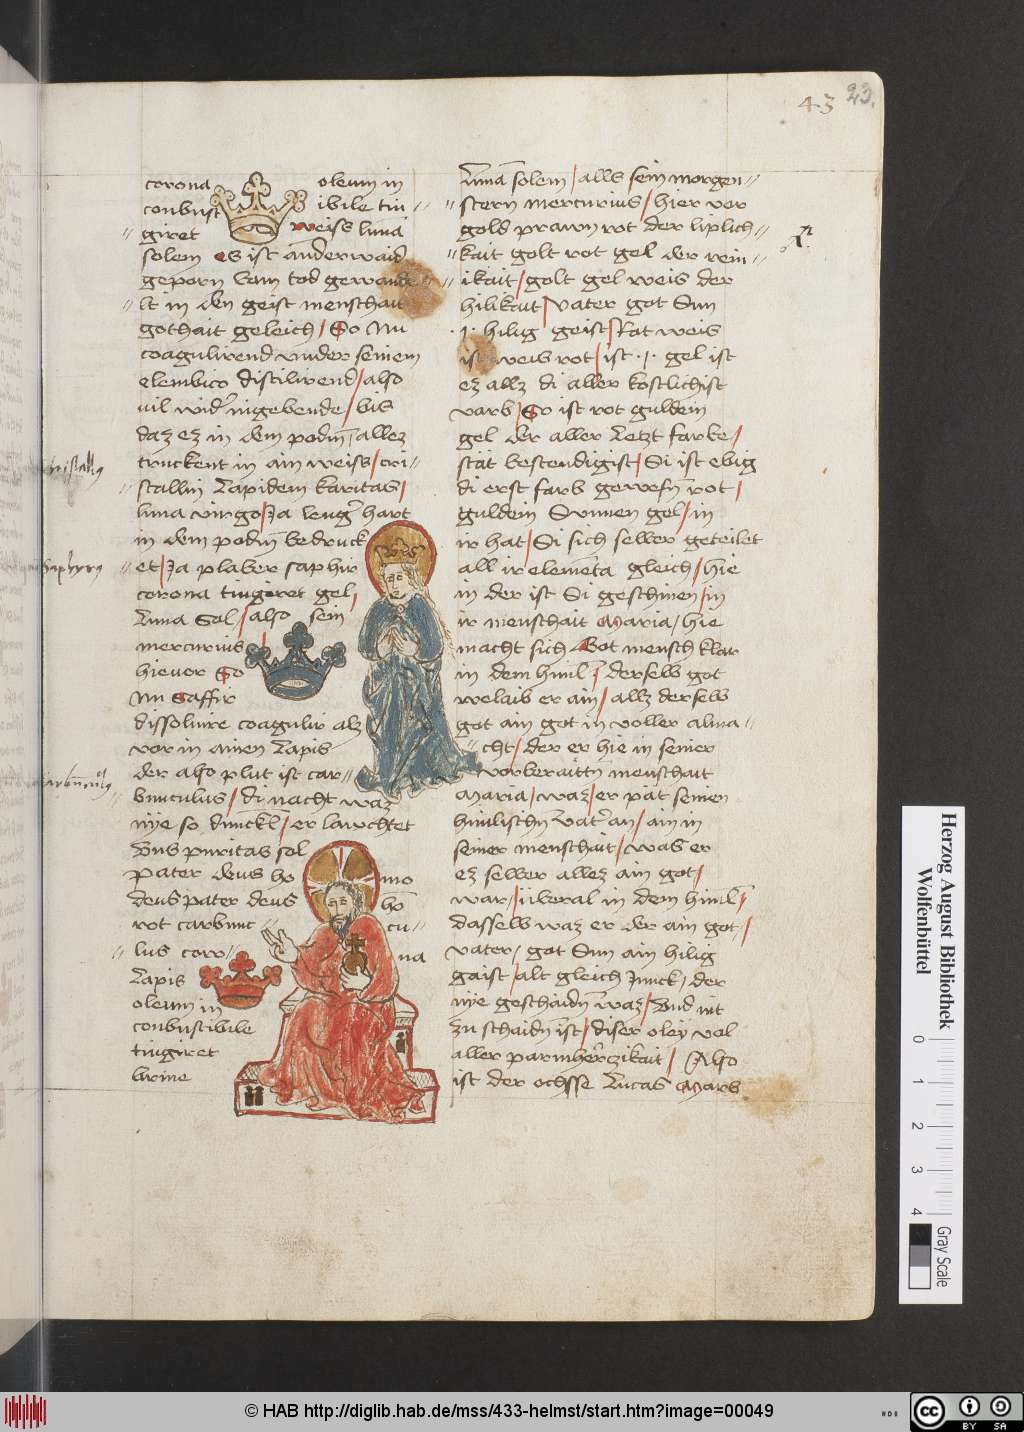 43 23.
corona oleum in
conbust ibile tin
giret weiss luna
solem es ist anderwaid
geporn vam tod gewande
lt in den geist menschait
gothait geleich / So Nu
coagulirend vnder seinem
elembico distilirend / also
vil wider ingebende / bis
daz ez in dem podm allez
truckent in ain weiss / cri
stallin Lapidem karitas /
luna virgo / Ja leng' hart
in dem podm bedruck
et / Ja plaber saphir
corona tingiret gel /
Luna Sol / also sein
mercurius /
hievor So
Nu Saffir
dissoluire coagulir alz
vor in ainen Lapis
der also plut ist car
bunculus / di nacht waz
nye so dunckl / er lawchtet
Vns puritas sol
Pater deus ho mo
deus pater deus ho
rot carbunc cu
lus coro na
Lapis
oleum in
conbustibile
tingiret
lirine
Luna solem / alls sein morgen
stern mercurius / hier vor
gold prawn rot der liplich
kait golt rot gel der rein
ikait / golt gel weis der
hilikait / Vater got Sun
.1. hilig geist / Rat weis
ist weis rot / ist .1. gel ist
ez allz di aller kostlichist
varb / So ist rot guldein
gel der aller Letzt farbe /
stät bestendigist / Si ist ebig
di erst farb gewesn rot /
guldein Sunnen gel / in
ir hat / Si sich selber geteilet
all ir elementa gleich / hie
in der ist Si geschinen / in
ir menschait Maria / hie
macht sich Got mensch klar
in dem himl / derselb got
welaib er ain / allz derselb
got ain got in voller alma
cht / der er hie in seiner
vorberaittn menschait
Maria / waz / er pat seinen
himlischn Vater an / ain in
seiner menschait / was er
ez selber allez ain got /
war / vberal in dem himl /
dasselb waz er der ain got /
vater / got Sun ain hilig
gaist / alt gleich Junck / der
nye geschaidn waz / Vnd nit
zu schaidn ist / diser oley vol
aller parmherczikait / Also
ist der ochsse Lucas Marb
Herzog August Bibliothek
Wolfenbüttel
0 1 2 3 4
Gray Scale
© HAB http://diglib.hab.de/mss/433-helmst/start.htm?image=00049
HAB
cc BY SA